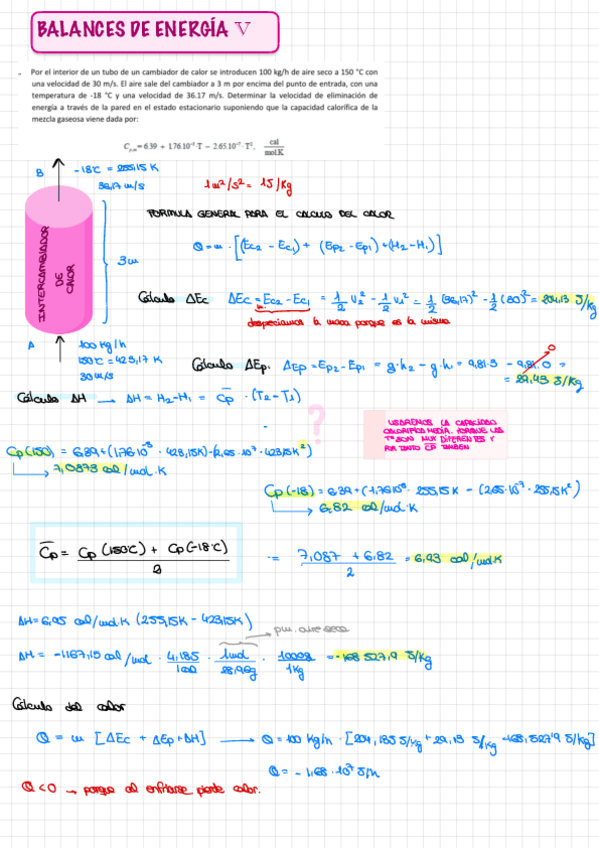 BALANCES DE ENERGÍA V
Por el interior de un tubo de un cambiador de calor se introducen 100 kg/h de aire seco a 150 °C con
una velocidad de 30 m/s. El aire sale del cambiador a 3 m por encima del punto de entrada, con una
temperatura de -18 °C y una velocidad de 36.17 m/s. Determinar la velocidad de eliminación de
energía a través de la pared en el estado estacionario suponiendo que la capacidad calorífica de la
mezcla gaseosa viene dada por:
C_p,m = 6.39 + 1.76·10⁻³·T − 2.65·10⁻⁷·T², cal/mol.K
B
-18°C = 255,15 K
36,17 m/s
1 m²/s² = 1 J/kg
FORMULA GENERAL PARA EL CALCULO DEL CALOR
Q = m · [(Ec2 - Ec1) + (Ep2 - Ep1) + (H2 - H1)]
INTERCAMBIADOR
DE
CALOR
3m
Cálculo ΔEc
ΔEc = Ec2 - Ec1 = 1/2 v2² - 1/2 v1² = 1/2 (36,17)² - 1/2 (30)² = 204,13 J/kg
despreciamos la masa porque es la misma
A
100 kg/h
150°C = 423,17 K
30 m/s
Cálculo ΔEp.
ΔEp = Ep2 - Ep1 = g·h2 - g·h1 = 9,81·3 - 9,81·0 =
0
= 29,43 J/kg
Cálculo ΔH → ΔH = H2 - H1 = Cp · (T2 - T1)
?
USAREMOS LA CAPACIDAD
CALORIFICA MEDIA. PORQUE LAS
Tª SON MUY DIFERENTES Y
POR TANTO CP TAMBIEN
Cp(150) = 6,39 + (1,76·10⁻³ · 423,15K) - (2,65·10⁻⁷ · 423,15K²)
7,0873 cal/mol·K
Cp(-18) = 6,39 + (1,76·10⁻³ · 255,15K - (2,65·10⁻⁷ · 255,15K²)
6,82 cal/mol·K
Cp = Cp(150°C) + Cp(-18°C) / 2
= 7,087 + 6,82 / 2 = 6,93 cal/mol·K
ΔH = 6,95 cal/mol·K (255,15K - 423,15K)
p.m. aire seco
ΔH = -1167,15 cal/mol · 4,185/1cal · 1mol/28,96g · 1000g/1kg = -168 527,9 J/kg
Cálculo del calor
Q = m [ΔEc + ΔEp + ΔH] → Q = 100 kg/h · [204,135 J/kg + 29,43 J/kg - 168,527,9 J/kg]
Q = -1,68·10⁷ J/h
Q < 0 → porque al enfriarse pierde calor.